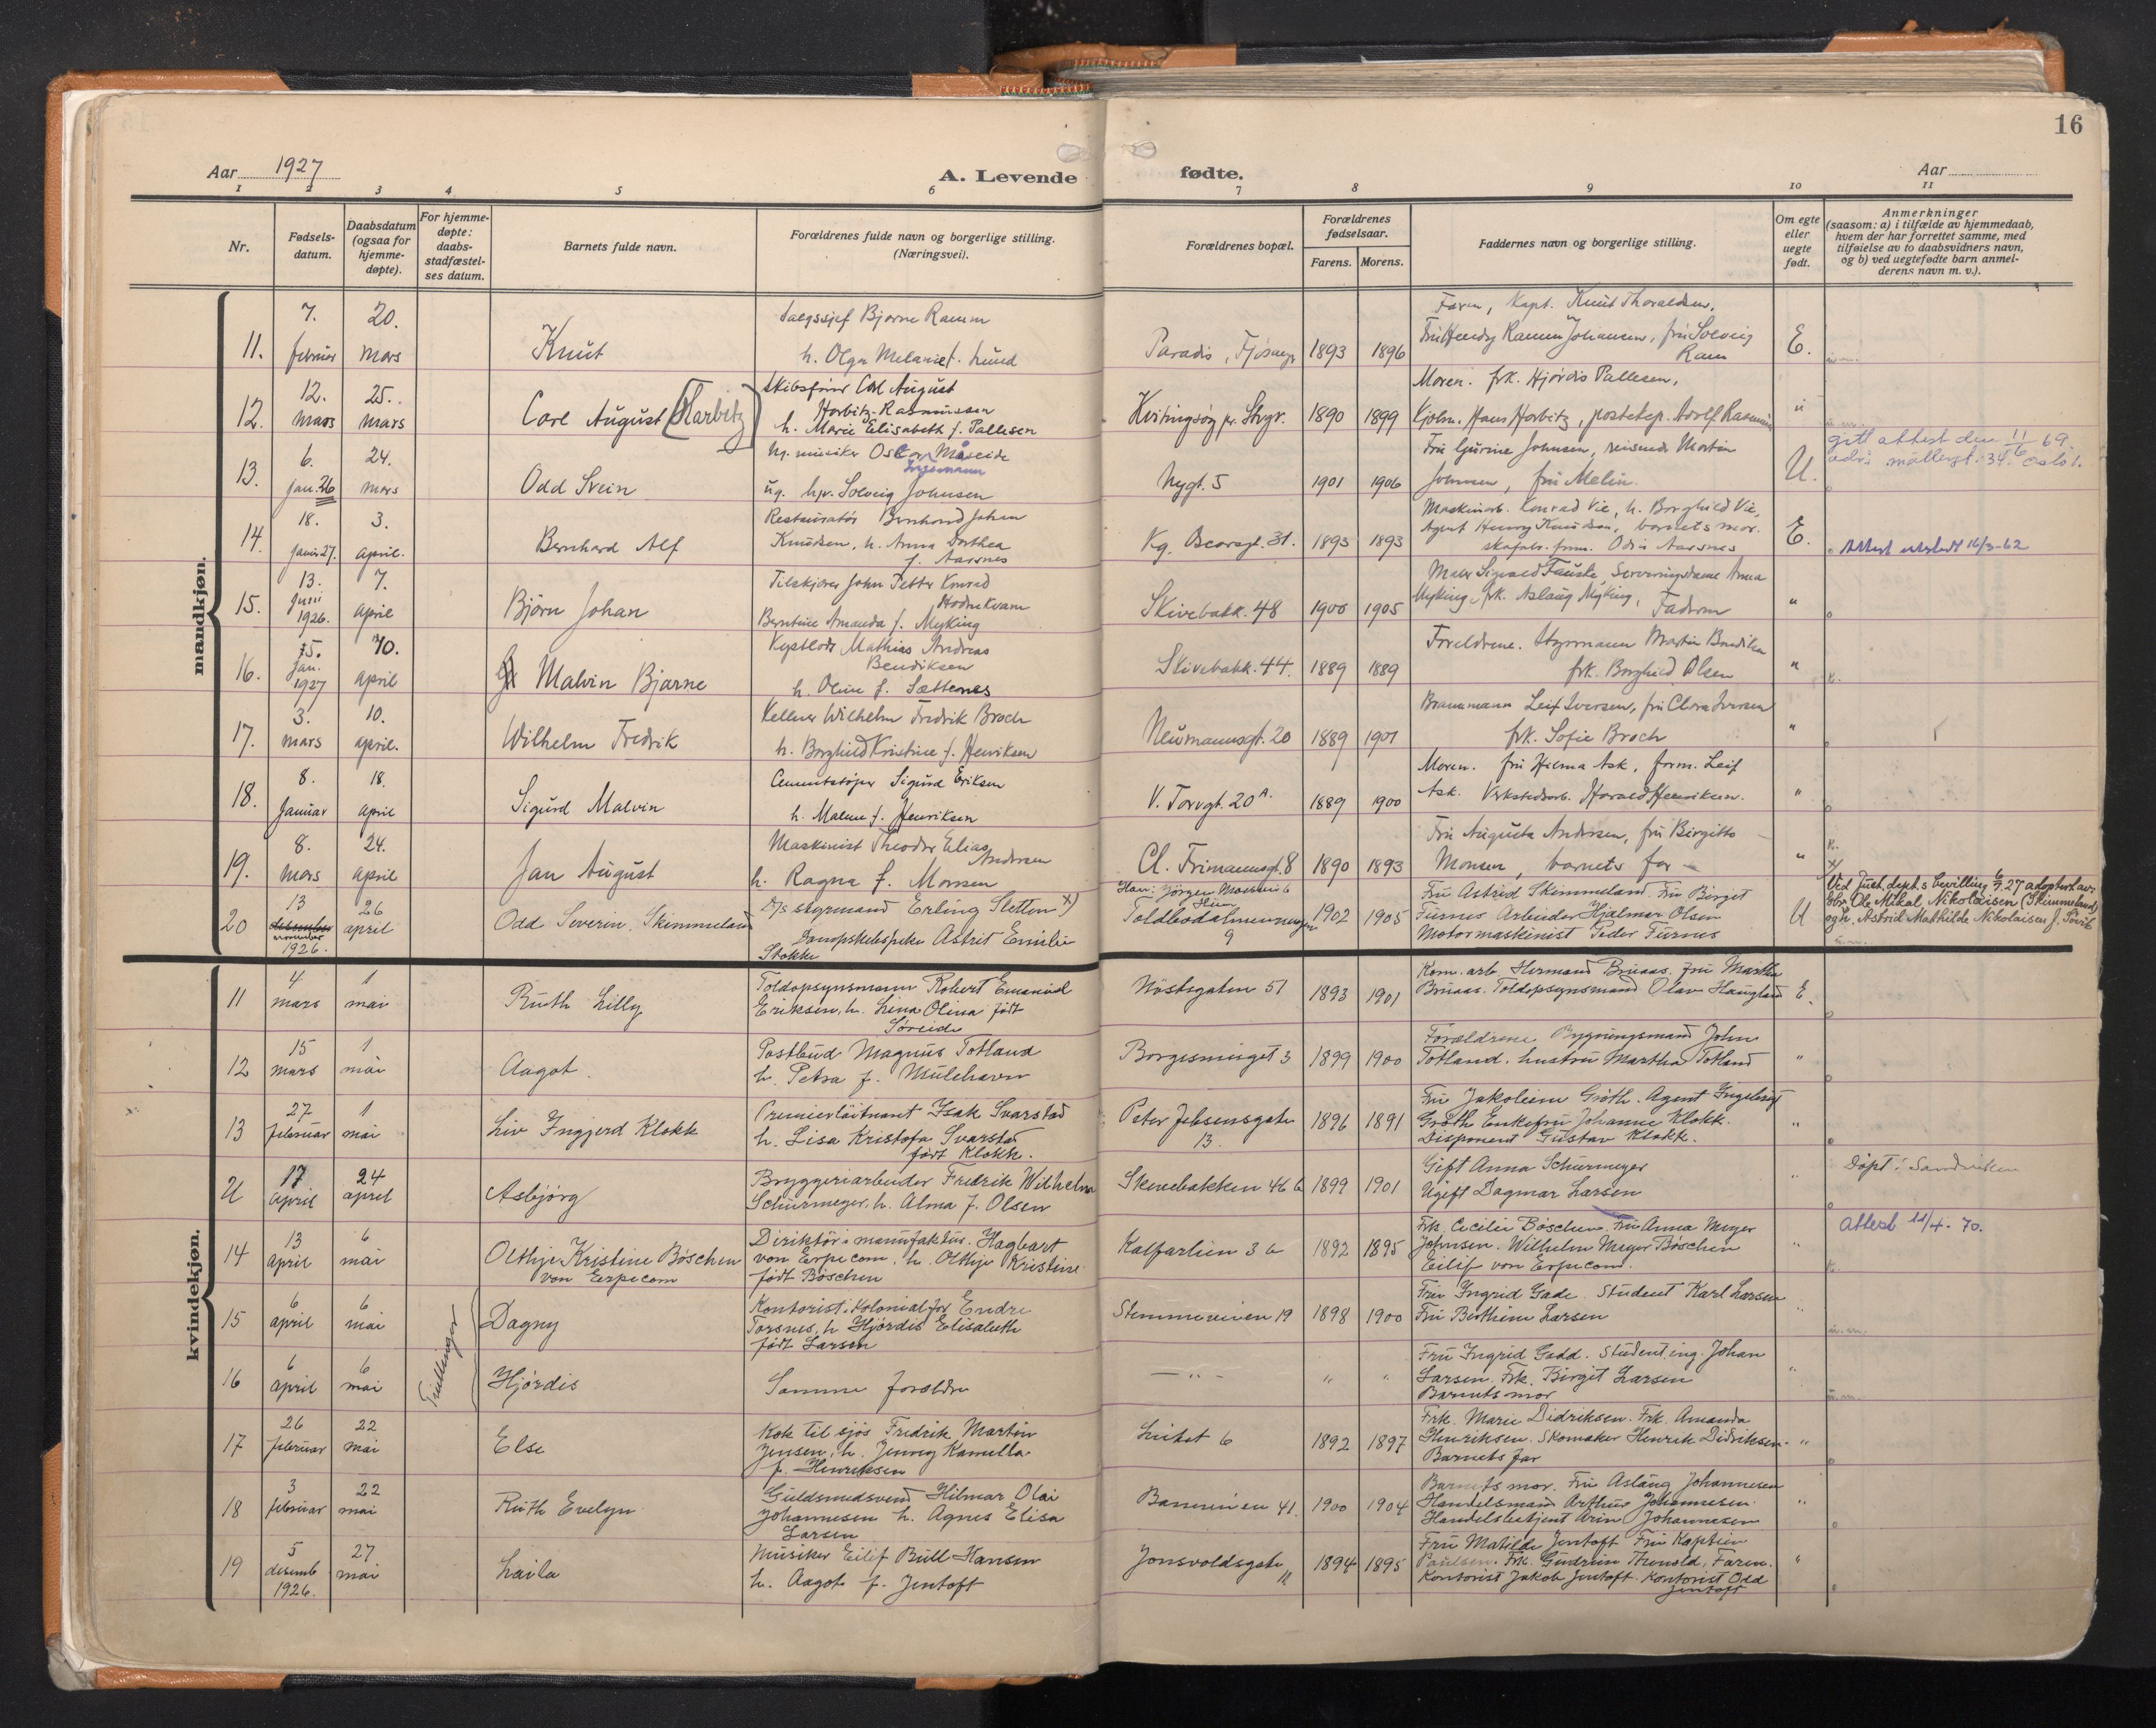 16
Aar 1927
A. Levende fødte.
Aar
1 2 3 4 5 6 7 8 9 10 11
Nr.
Fødsels-
datum.
Daabsdatum
(ogsaa for
hjemme-
døpte).
For hjemme-
døpte:
daabs-
stadfæstel-
ses datum.
Barnets fulde navn.
Forældrenes fulde navn og borgerlige stilling.
(Næringsvei).
Forældrenes bopæl.
Forældrenes
fødselsaar.
Farens. Morens.
Faddernes navn og borgerlige stilling.
Om egte
eller
uegte
født.
Anmerkninger
(saasom: a) i tilfælde av hjemmedaab,
hvem der har forrettet samme, med
tilføielse av to daabsvidners navn,
og b) ved uegtefødte barn anmel-
derens navn m. v.).
mandkjøn.
11. 7. februar 20. mars
Knut
Salgssjef Bjarne Ramm
h. Olga Melanie f. Lund
Paradis, 1893 1896
Faren, Kapt. Knut Thoraldsen,
Fru Ramm Johansen, fru Solveig
Ram
E.
12. 12. mars 25. mars
Carl August [Harbitz]
Skibsfører Carl August
Harbitz-Rasmussen
h. Marie Elisabeth f. Pallesen
Kvitingsøy pr. Stvgr. 1890 1899
Moren. frk. Hjørdis Pallesen,
Hans Harbitz, posteksp. Adolf
13. 6. jan. 26 24. mars
Odd Svein
Ug. musiker Oskar Måseide
Ingemann
ug. hpr. Solveig Johnsen
Nygt. 5 1901 1906
Fru Gurine Johnsen, reisende Martin
Johnsen, fru Melin.
U.
gitt attest den 11/6 69.
34. Oslo 1.
14. 18. 3. april.
Bernhard Alf
Restauratør Bernhard Johan
Knudsen, h. Anna Dorthea
f. Aarsnes
Kg. Oscarsgt. 31. 1893 1893
Maskinarb. Konrad Vie, h. Borghild Vie,
Agent Henry Knudsen, barnets mor.
Odin Aarsnes
E.
Attest utstedt 16/3-62
15. 13. juni 1926. 7. april
Bjørn Johan
John Petter Konrad
Hodnekvam
Berntine Amanda f. Myking
Skivebakk. 48 1900 1905
Maler Sigvald Fauske, Serveringsdame Anna
Myking, frk. Aslaug Myking, Faderen
"
16. 15. jan. 1927 10. april
Malvin Bjarne
Kystlods Mathias Andreas
Bendiksen
h. Oline f. Sættenes
Skivebakk. 44. 1889 1889
Foreldrene. Styrmann Martin Bendiksen
frk. Borghild Olsen
"
17. 3. mars 10. april.
Wilhelm Fredrik
Kellner Wilhelm Fredrik Broch
h. Borghild Kristine f. Henriksen
Neumannsgt. 20 1889 1901
Brannmann Leif Iversen, fru Clara Iversen
frk. Sofie Broch
"
18. 8. Januar 18. april
Sigurd Malvin
Cementstøper Sigurd Eriksen
h. Malene f. Henriksen
V. Torvgt. 20 A. 1889 1900
Moren. fru Hilma Ask, form. Leif
Ask. Verkstedsarb. Harald Henriksen.
"
19. 8. Mars 24. april
Jan August
Maskinist Theodor Elias
Andersen
h. Ragna f. Monsen
Cl. Frimannsgt. 8 1890 1893
Fru Augusta Andersen, fru Birgitte
Monsen, barnets far
"
20 13 desember november 1926. 26 april
Odd Severin Skimmeland
styrmand Erling Sletten x)
Astrit Emilie
Stokke
Han: Jørgen
Toldbodalmenningen
9 1902 1905
Fru Astrid Skimmeland. Fru Birgit
Furnes Arbeider Hjalmar Olsen
Motormaskinist Peder Furnes
U
x) Ved Just.dept.s bevilling 6/7.27 adoptert av
Ole Mikal Nikolaisen (Skimmeland)
og h. Astrid Mathilde Nikolaisen f. Sørvik
kvindekjøn.
11 4 mars 1 mai
Ruth Lilly
Toldopsynsmann Robert Emanuel
Eriksen, h. Lina Olina født
Søreide
Nøstegaten 51 1893 1901
Kom. arb. Hermand Bruaas. Fru Martha
Bruaas. Toldopsynsmand Olav Haugland
E.
12 15 mars 1 mai
Aagot.
Postbud Magnus Totland
h. Petra f. Mülehavn
Borgesmuget 3 1899 1900
Forældrene Bygningsmand John
Totland. hustru Martha Totland
"
13 27 februar 1 mai
Liv Ingjerd Klokk
Premierløitnant Isak Svarstad
h. Lisa Kristofa Svarstad
født Klokk.
Peter Jebsensgate
13. 1896 1891
Fru Jakobine Groth. Agent Ingebrigt
Groth Enkefru Johanne Klokk.
Disponent Gustav Klokk.
"
U 17 april 24 april
Asbjørg
Bryggeriarbeider Fredrik Wilhelm
Schürmeyer, h. Alma f. Olsen
Skivebakken 46 b 1899 1901
Gift Anna Schürmeyer
Ugift Dagmar Larsen
"
Døpt i Sandviken
14 13 april 6 mai
Olthje Kristine Böschen
von Erpecom
Direktør i manufaktur. Hagbart
von Erpecom. h. Olthje Kristine
født Böschen
Kalfarlien 3 b 1892 1895
Frk. Cecilie Böschen. Fru Anna Meyer
Johnsen. Wilhelm Meyer Böschen
Eilif von Erpecom.
"
attest 11/4-70.
15 6 april 6 mai
Trillinger
Dagny
Kontorist i Kolonialfor Endre
Torsnes, h Hjørdis Elisabeth
født Larsen
Stemmeveien 19 1898 1900
Fru Ingrid Gade. Student Karl Larsen
Fru Berthine Larsen
"
16 6 april 6 mai
Hjørdis
Samme foreldre
— " — " "
Fru Ingrid Gadd. Student. ing. Johan
Larsen. Frk. Birgit Larsen
Barnets mor
"
17 26 februar 22 mai
Else
Kok til sjøs Fredrik Martin
Jensen, h. Jenny Kamilla
f. Henriksen
6 1892 1897
Frk. Marie Didriksen. Frk. Amanda
Henriksen. Skomaker Henrik Didriksen.
Barnets far
"
18 3 februar 22 mai
Ruth Evelyn
Guldsmedsvend Hilmar Olai
Johannesen h. Agnes Elisa
Larsen
41. 1900 1904
Barnets mor. Fru Aslaug Johannesen
Handelsmand Arthur Johannesen.
Handelsbetjent Johannesen
"
19 5 desemb 1926. 27 mai
Laila
Musiker Eilif Bull Hansen
h. Aagot f. Jentoft
Jonsvoldsgate
1894 1895
Fru Matilde Jentoft Fru Kaptein
Paulsen. Frk. Gudrun Faren.
Kontorist Jakob Jentoft. Kontorist Odd
Jentoft
"